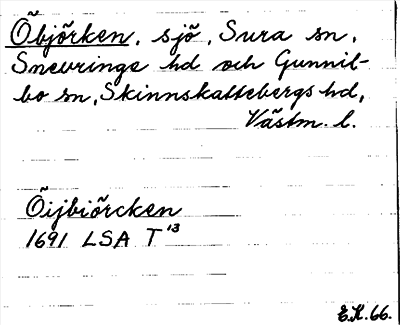 Öbjörken, sjö, Sura sn,
Snevringe hd och Gunnil-
bo sn, Skinnskattebergs hd,
Västm. l.
Öijbiörcken
1691 LSA T¹³
E.K. 66.